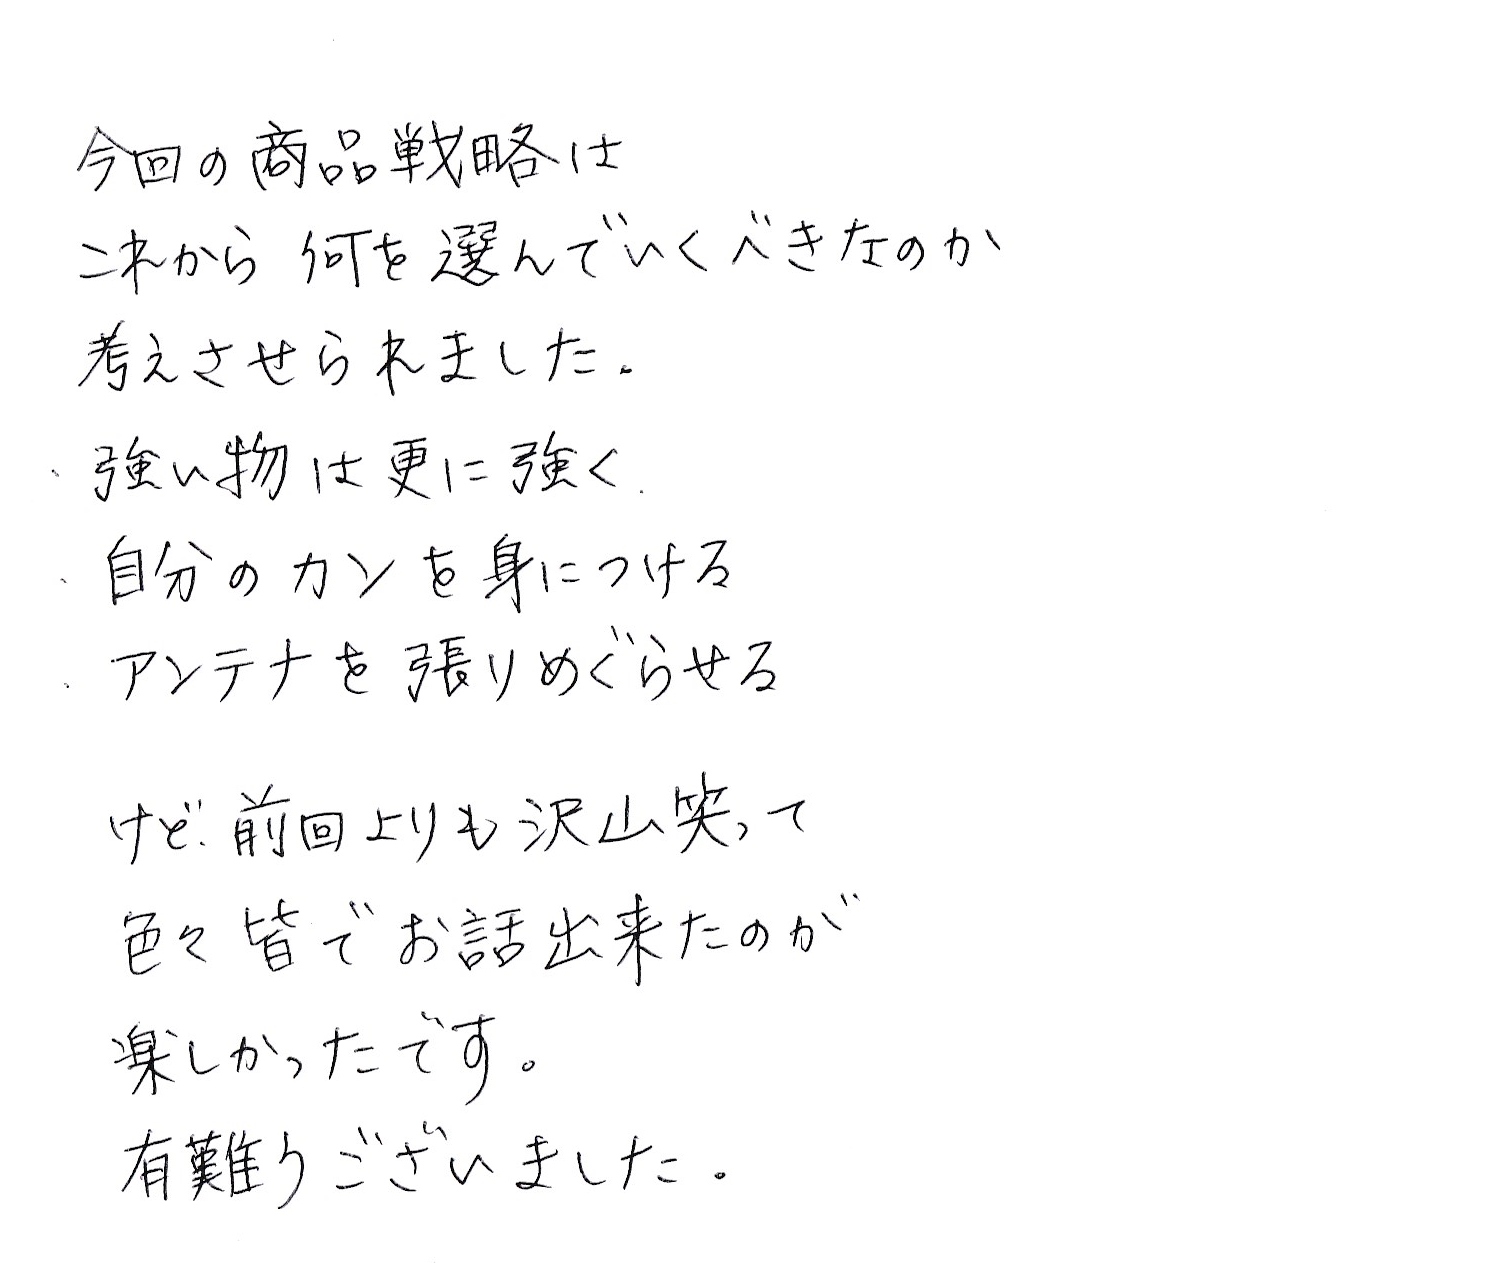 今回の商品戦略は
これから何を選んでいくべきなのか
考えさせられました.
、強い物は更に強く.
、自分のカンを身につける
、アンテナを張りめぐらせる
けど.前回よりも沢山笑って
色々皆でお話出来たのが
楽しかったです。
有難うございました.